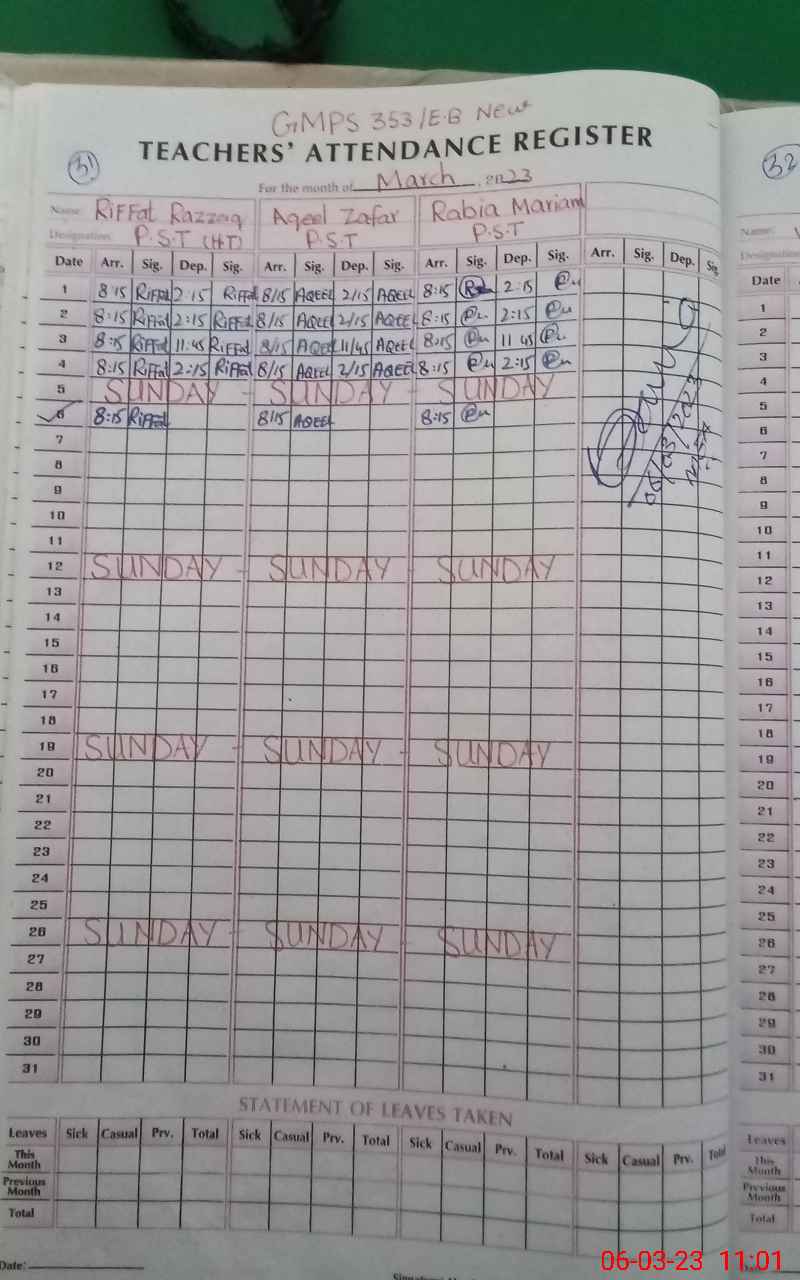 GMPS 353/E.B New
TEACHERS' ATTENDANCE REGISTER
31
32
For the month of March, 2023
Name: Riffat Razzaq Aqeel Zafar Rabia Mariam
Designation: P.S.T (H.T) P.S.T P.S.T
Date Arr. Sig. Dep. Sig. Arr. Sig. Dep. Sig. Arr. Sig. Dep. Sig. Arr. Sig. Dep. Sig
1 8:15 Riffat 2:15 Riffat 8/15 AQEEL 2/15 AQEEL 8:15 2:15
2 8:15 Riffat 2:15 Riffat 8/15 AQEEL 2/15 AQEEL 8:15 2:15
3 8:15 Riffat 11:45 Riffat 8/15 AQEEL 11/45 AQEEL 8:15 11 45
4 8:15 Riffat 2:15 Riffat 8/15 AQEEL 2/15 AQEEL 8:15 2:15
5 SUNDAY - SUNDAY - SUNDAY
6 8:15 Riffat 8/15 AQEEL 8:15
7
8
9
10
11
12 SUNDAY - SUNDAY - SUNDAY
13
14
15
16
17
18
19 SUNDAY - SUNDAY - SUNDAY
20
21
22
23
24
25
26 SUNDAY - SUNDAY - SUNDAY
27
28
29
30
31
STATEMENT OF LEAVES TAKEN
Leaves Sick Casual Prv. Total Sick Casual Prv. Total Sick Casual Prv. Total Sick Casual Prv. Total
This Month
Previous Month
Total
Date:
Name:
Designation
Date
1
2
3
4
5
6
7
8
9
10
11
12
13
14
15
16
17
18
19
20
21
22
23
24
25
26
27
28
29
30
31
Leaves
This Month
Previous Month
Total
06-03-23 11:01